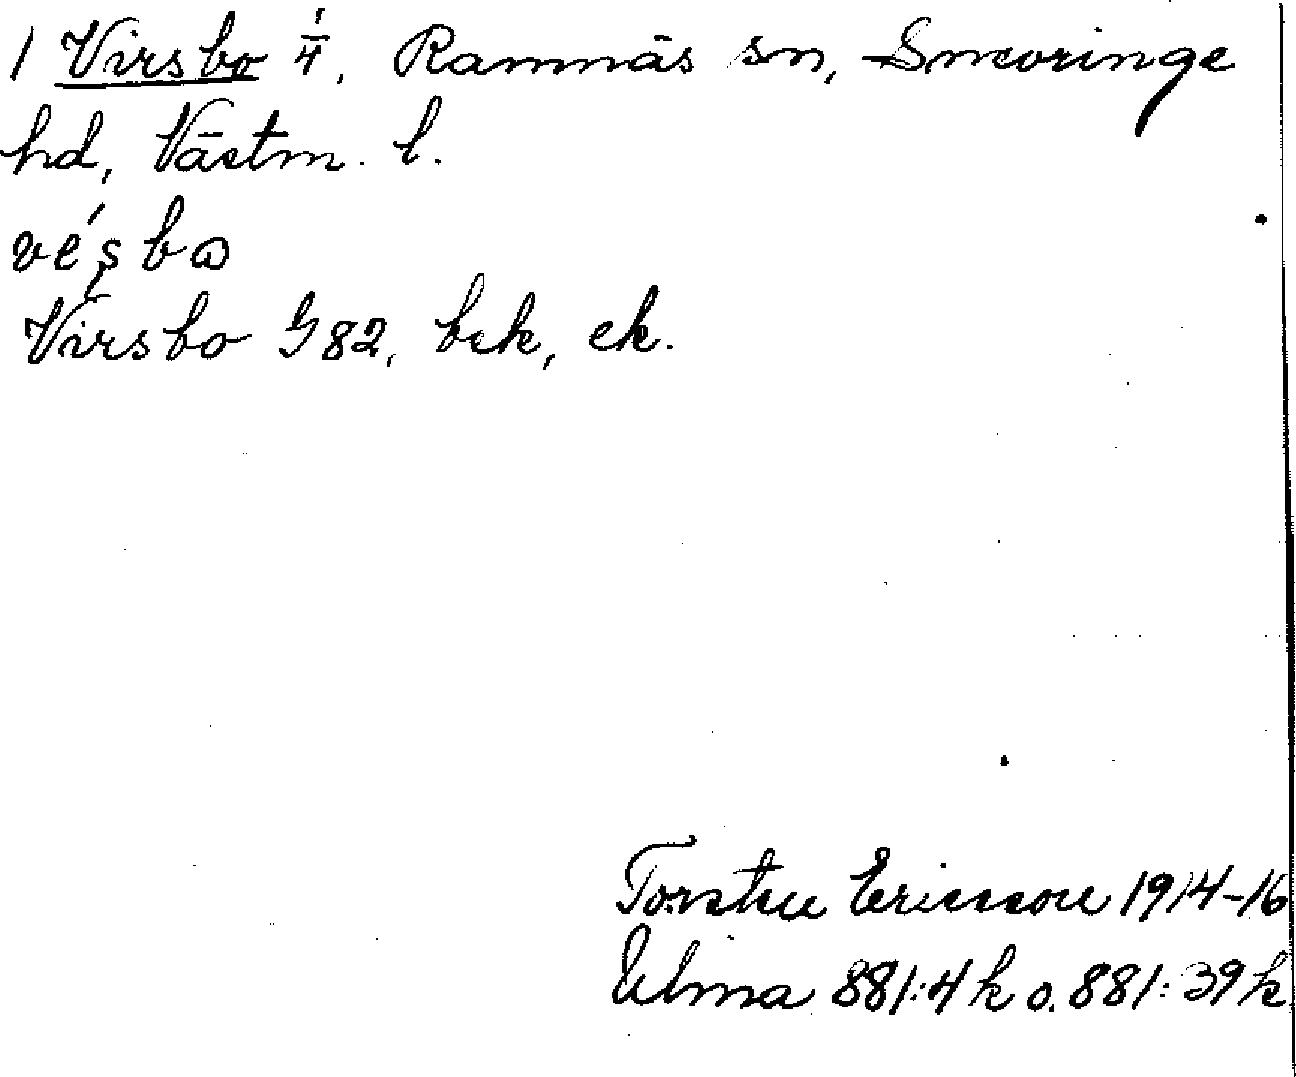 1 Virsbo 1/4, Ramnäs sn, Snevringe
hd, Västm. l.
vé̜s̩bω
Virsbo G82, bek, ek.
Torsten Ericsson 1914-16
Ulma 881:4 k o. 881:39 k